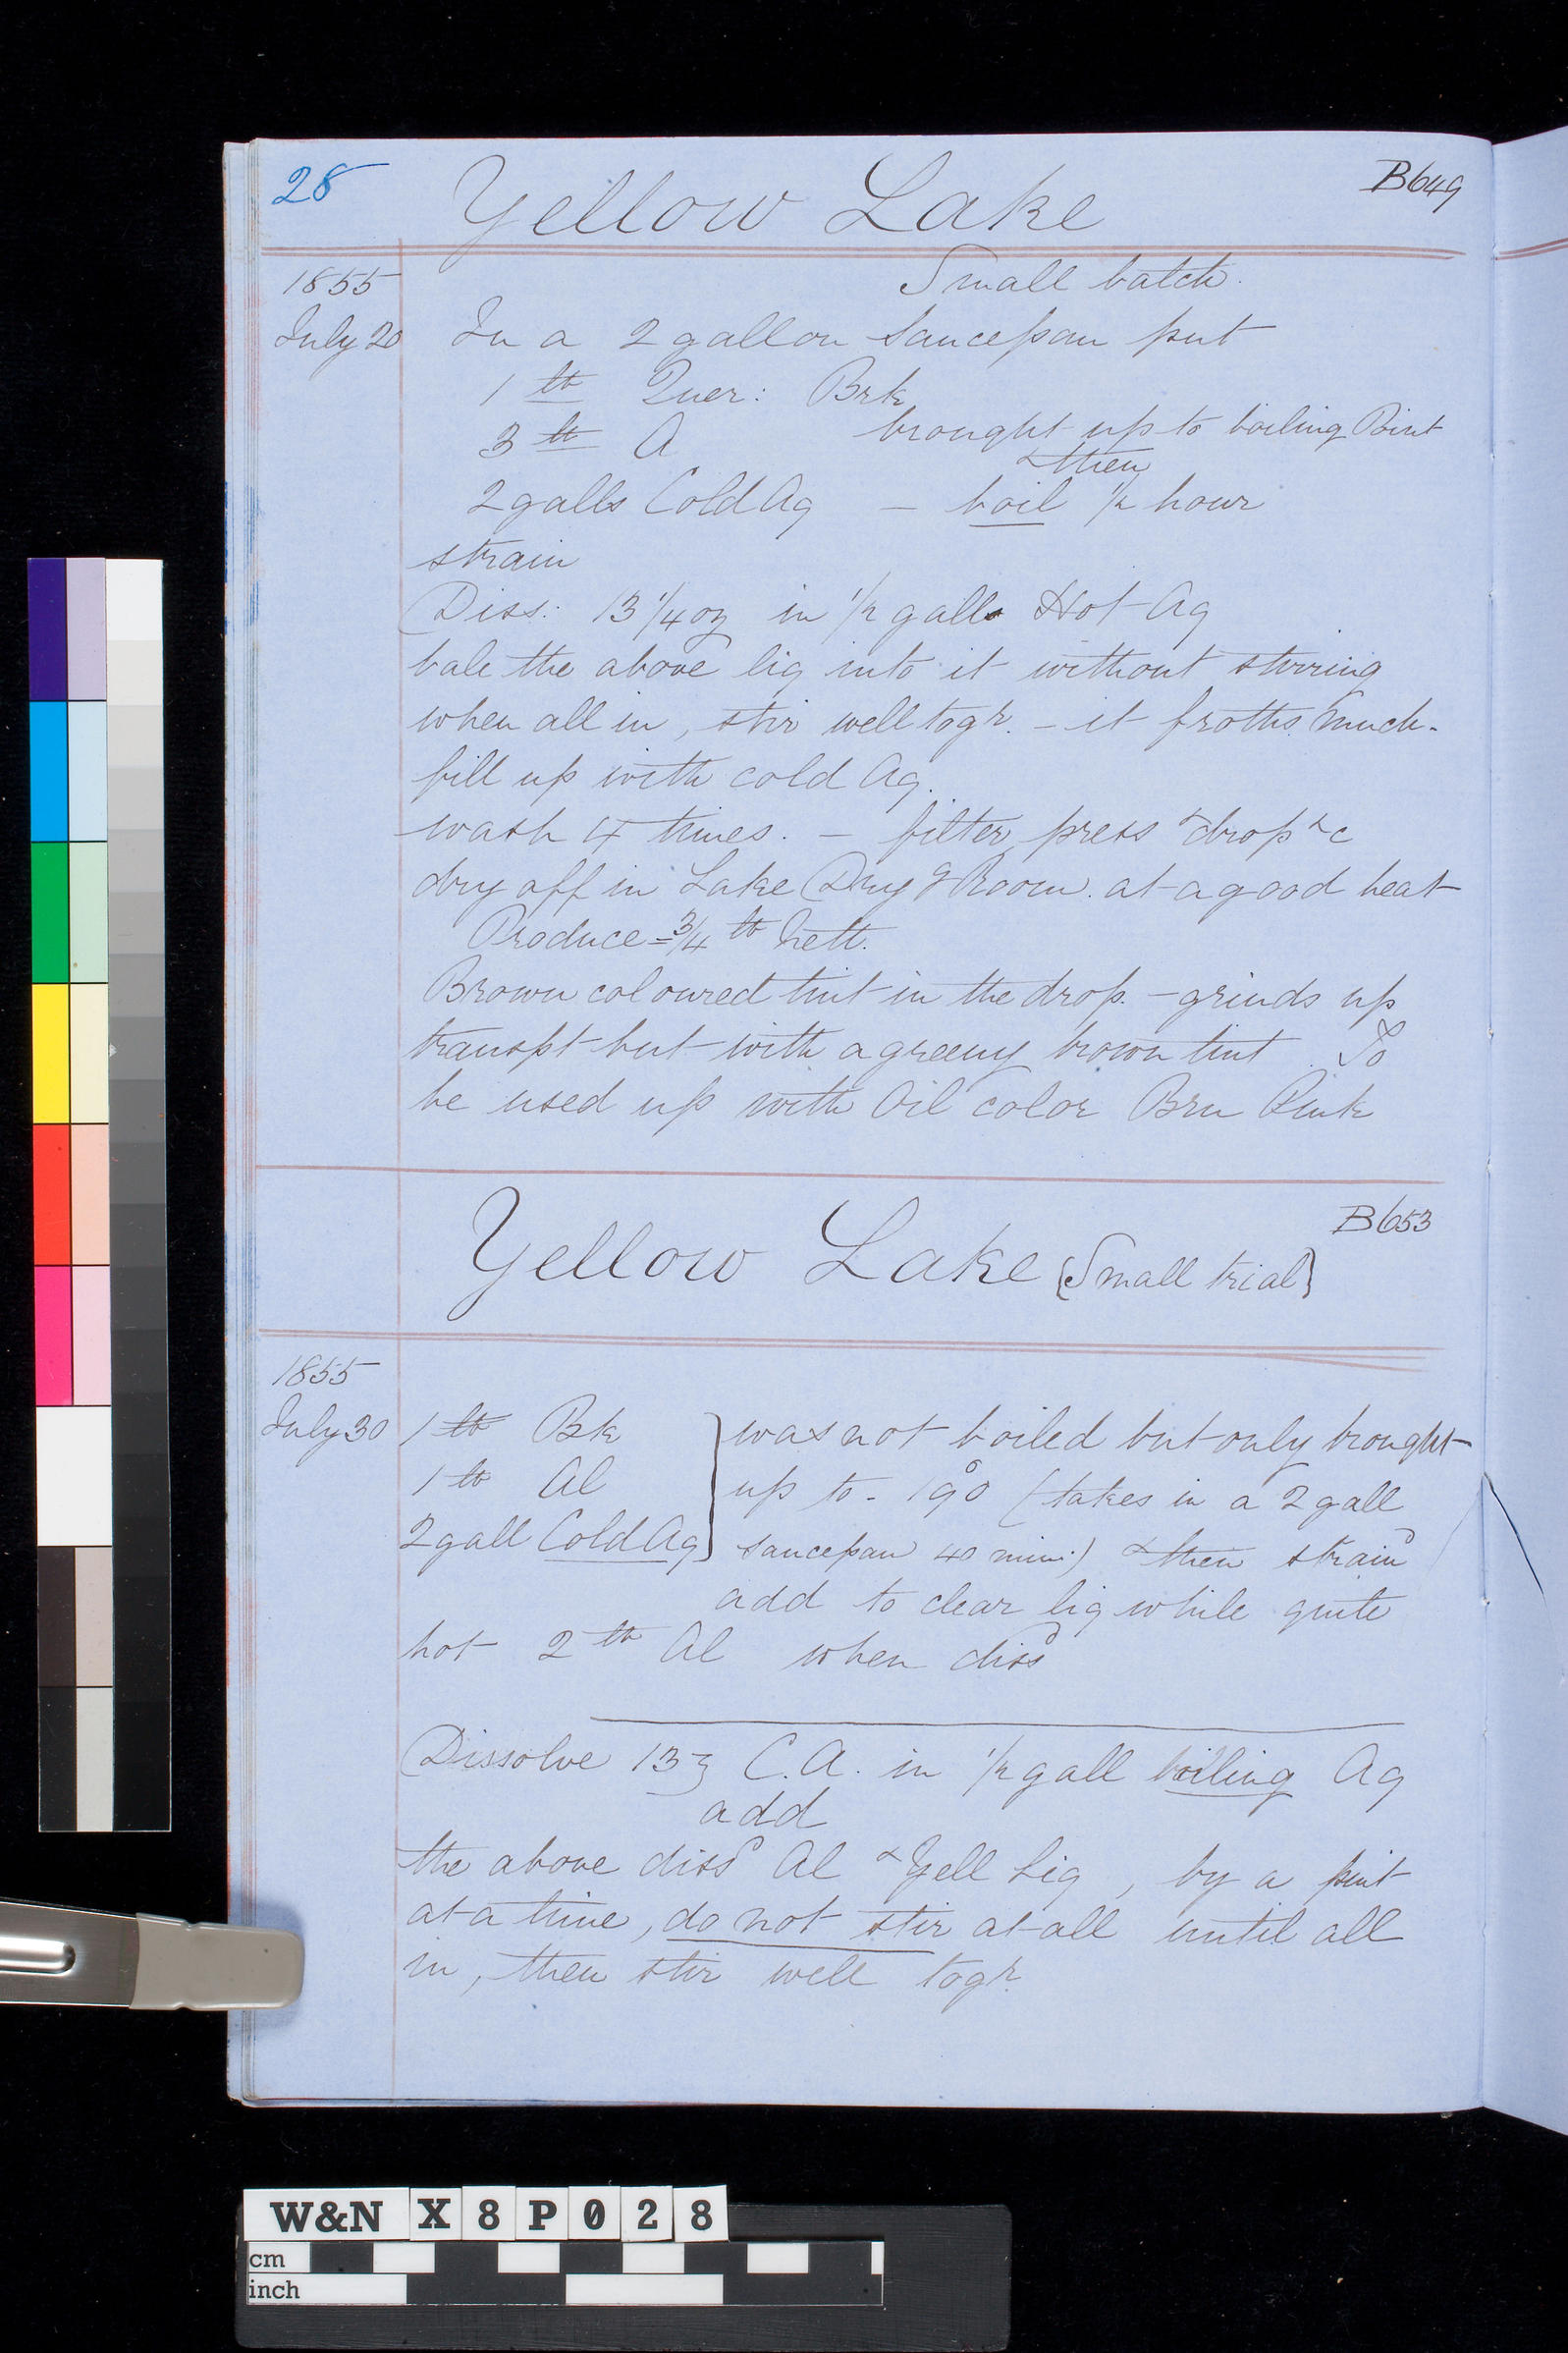 28
Yellow Lake
B649
1855
Small batch.
July 20
In a 2 gallon saucepan put
1 lb Quer: Brk
3 lb A brought up to boiling Point
& then
2 galls Cold Aq – boil ½ hour
strain
Diss: 13 ¼ oz in ½ galls Hot Aq
bale the above liq into it without stirring
when all in, stir well togr. – it froths much.
fill up with cold Aq.
wash 4 times. – filter, press & drop &c
dry off in Lake Dryg Room. at a good heat
Produce = ¾ lb nett.
Brown coloured tint in the drop. – grinds up
transpt but with a greeny brown tint. To
be used up with Oil color Brn Pink
Yellow Lake {Small trial}
B653
1855
July 30
1 lb Bk
1 lb Al
2 gall Cold Aq
was not boiled but only brought
up to – 190° (takes in a 2 gall
saucepan 40 min:) & then straind
add to clear liq while quite
hot 2 lb Al when dissd
Dissolve 13 ℥ C.A. in ½ gall boiling Aq
add
the above dissd Al & Yell Liq, by a pint
at a time, do not stir at all until all
in, then stir well togr.
W&N X8P028
cm
inch